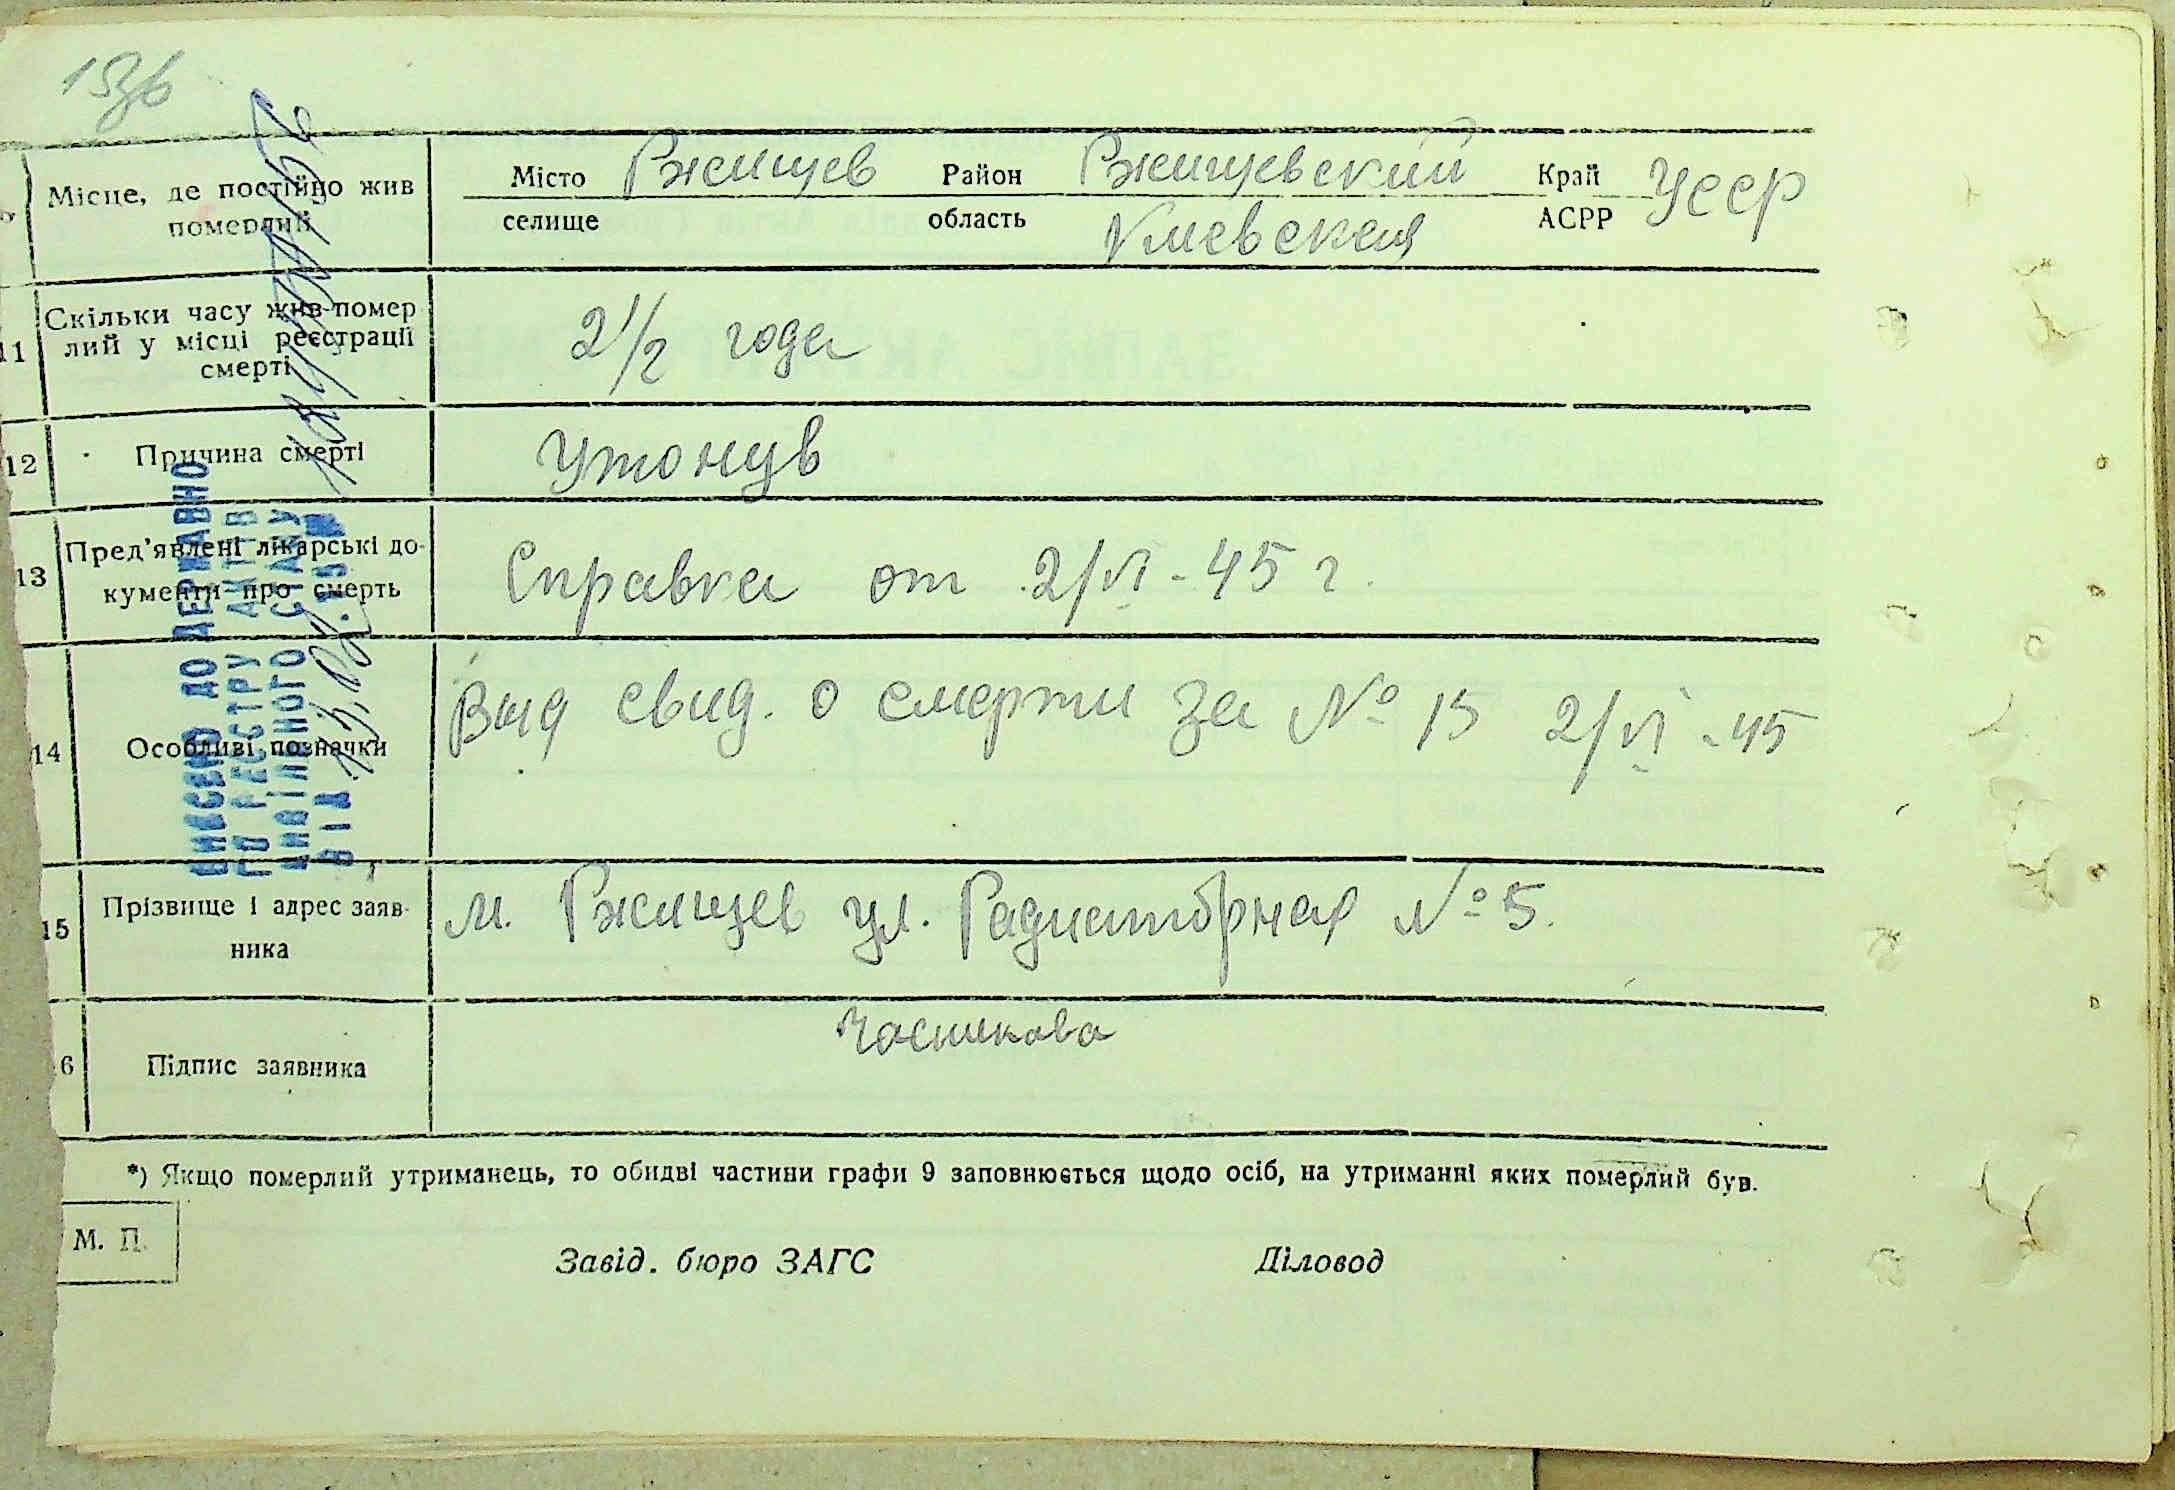 Місце, де постійно жив
померлий
Місто Ржищев Район Ржищевский Край УССР
селище область Киевская АСРР
11 Скільки часу жив помер
лий у місці реєстрації
смерті
2 1/2 года
12 Причина смерті
Утонув
13 Пред'явлені лікарські до-
кументи про смерть
Справка от 2/VI - 45 г.
14 Особливі позначки
Выд свид. о смерти за № 15 2/VI - 45
15 Прізвище і адрес заяв-
ника
м. Ржищев ул. Радиаторная № 5.
6 Підпис заявника
*) Якщо померлий утриманець, то обидві частини графи 9 заповнюється щодо осіб, на утриманні яких померлий був.
М. П.
Завід. бюро ЗАГС Діловод
ВНЕСЕНО ДО ДЕРЖАВНО
ГО РЕЄСТРУ АКТІВ
ЦИВІЛЬНОГО СТАНУ
ВІД